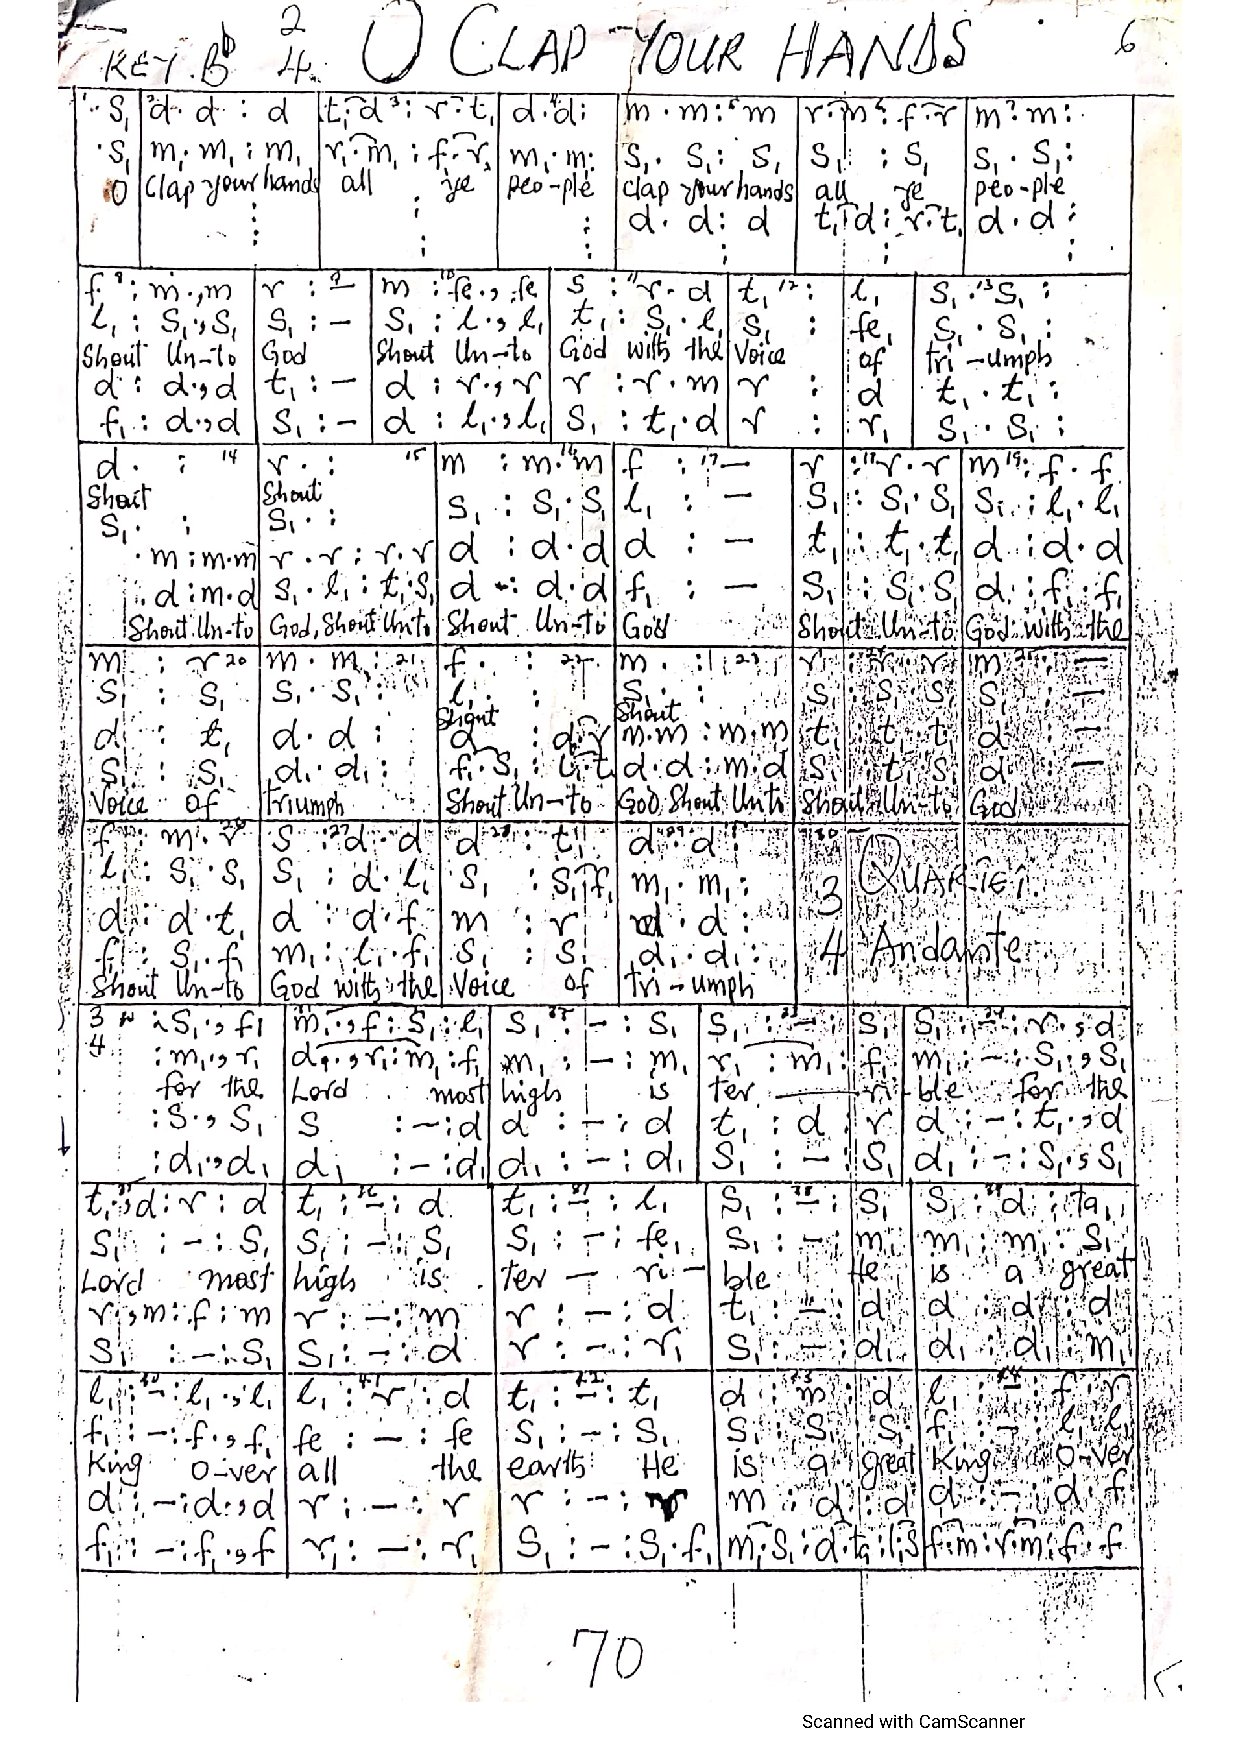 KEY. B♭ 2/4 O CLAP YOUR HANDS 6
·S₁ | d· d : d | t₁ d : r· t₁ | d·d: | m·m : m | r·m : f·r | m·m:
·S₁ | m₁· m₁ : m₁ | r₁·m₁ : f₁·r₁ | m₁·m₁: | S₁· S₁ : S₁ | S₁ : S₁ | S₁·S₁:
O | Clap your hands | all ye | peo-ple | clap your hands | all ye | peo-ple
d· d : d | t₁ d : r·t₁ | d·d:
f : m·,m | r : — | m : fe·,fe | S : r·d | t₁ : l₁ | S₁·S₁ :
l₁ : S₁·,S₁ | S₁ : — | S₁ : l·,l₁ | t₁ : S₁·l₁ | S₁ : fe₁ | S₁·S₁ :
Shout Un-to | God | Shout Un-to | God with the | Voice of | tri-umph
d : d·,d | t₁ : — | d : r·,r | r : r·m | r : d | t₁·t₁ :
f₁ : d·,d | S₁ : — | d : l₁·,l₁ | S₁ : t₁·d | r : r₁ | S₁·S₁ :
d· : 14 | r· : 15 | m : m·m | f : 17 — | r : r·r | m : f·f
Shout | Shout
S₁· : | S₁· : | S₁ : S₁·S₁ | l₁ : — | S₁ : S₁·S₁ | S₁ : l₁·l₁
·m : m·m | r·r : r·r | d : d·d | d : — | t₁ : t₁·t₁ | d : d·d
·d : m·d | S₁·l₁ : t₁·S₁ | d : d·d | f₁ : — | S₁ : S₁·S₁ | d : f₁·f₁
Shout Un-to | God, Shout Unto | Shout Un-to | God | Shout Un-to | God with the
m : r 20 | m·m : 21 | f· : 22 | m· : 23 | r : r·r | m : —
S₁ : S₁ | S₁·S₁ : | l₁· : | S₁· : | S₁ : S₁·S₁ | S₁ : —
Shout | Shout
d : t₁ | d·d : | d : d·r | m·m : m·m | t₁ : t₁·t₁ | d : —
S₁ : S₁ | d₁·d₁ : | f₁·S₁ : l₁·t₁ | d·d : m·d | S₁ : t₁·S₁ | d : —
Voice of | triumph | Shout Un-to | God, Shout Unto | Shout Un-to | God
f : m·r | S : d·d | d : t₁ | d·d : | 30
l₁ : S₁·S₁ | S₁ : d·l₁ | S₁ : S₁·f₁ | m₁·m₁ : | 3 QUARTET
d : d·t₁ | d : d·f | m : r | d·d :
f₁ : S₁·f₁ | m₁ : l₁·f₁ | S₁ : S₁ | d₁·d₁ : | 4 Andante
Shout Un-to | God with the | Voice of | tri-umph
3 : S₁·,f₁ | m₁·,f₁ : S₁ : l₁ | S₁ : — : S₁ | S₁ : — : S₁ | S₁ : — : r·,d
4 : m₁·,r₁ | d₁·,r₁ : m₁ : f₁ | m₁ : — : m₁ | r₁ : m₁ : f₁ | m₁ : — : S₁·,S₁
for the | Lord most | high is | ter — ri- | ble for the
: S·,S₁ | S : — : d | d : — : d | t₁ : d : r | d : — : t₁·,d
: d₁·,d₁ | d₁ : — : d₁ | d₁ : — : d₁ | S₁ : — : S₁ | d₁ : — : S₁·,S₁
t₁·,d : r : d | t₁ : — : d | t₁ : — : l₁ | S₁ : — : S₁ | S₁ : d : ta₁
S₁ : — : S₁ | S₁ : — : S₁ | S₁ : — : fe₁ | S₁ : — : m₁ | m₁ : m₁ : S₁
Lord most | high is | ter — ri — | ble He | is a great
r·,m : f : m | r : — : m | r : — : d | t₁ : — : d | d : d : d
S₁ : — : S₁ | S₁ : — : d | r : — : r₁ | S₁ : — : d₁ | d₁ : d₁ : m₁
l₁ : — : l₁·,l₁ | l₁ : r : d | t₁ : — : t₁ | d : m : d | l₁ : — : f·r
f₁ : — : f₁·,f₁ | fe : — : fe | S₁ : — : S₁ | S₁ : S₁ : S₁ | f₁ : — : l₁·l₁
King O-ver | all the | earth He | is a great | King O-ver
d : — : d·,d | r : — : r | r : — : r | m : d : d | d : — : d·f
f₁ : — : f₁·,f | r₁ : — : r₁ | S₁ : — : S₁·f₁ | m₁·S₁ : d·ta₁ : l₁·S | f·m : r·m : f·f
70
Scanned with CamScanner